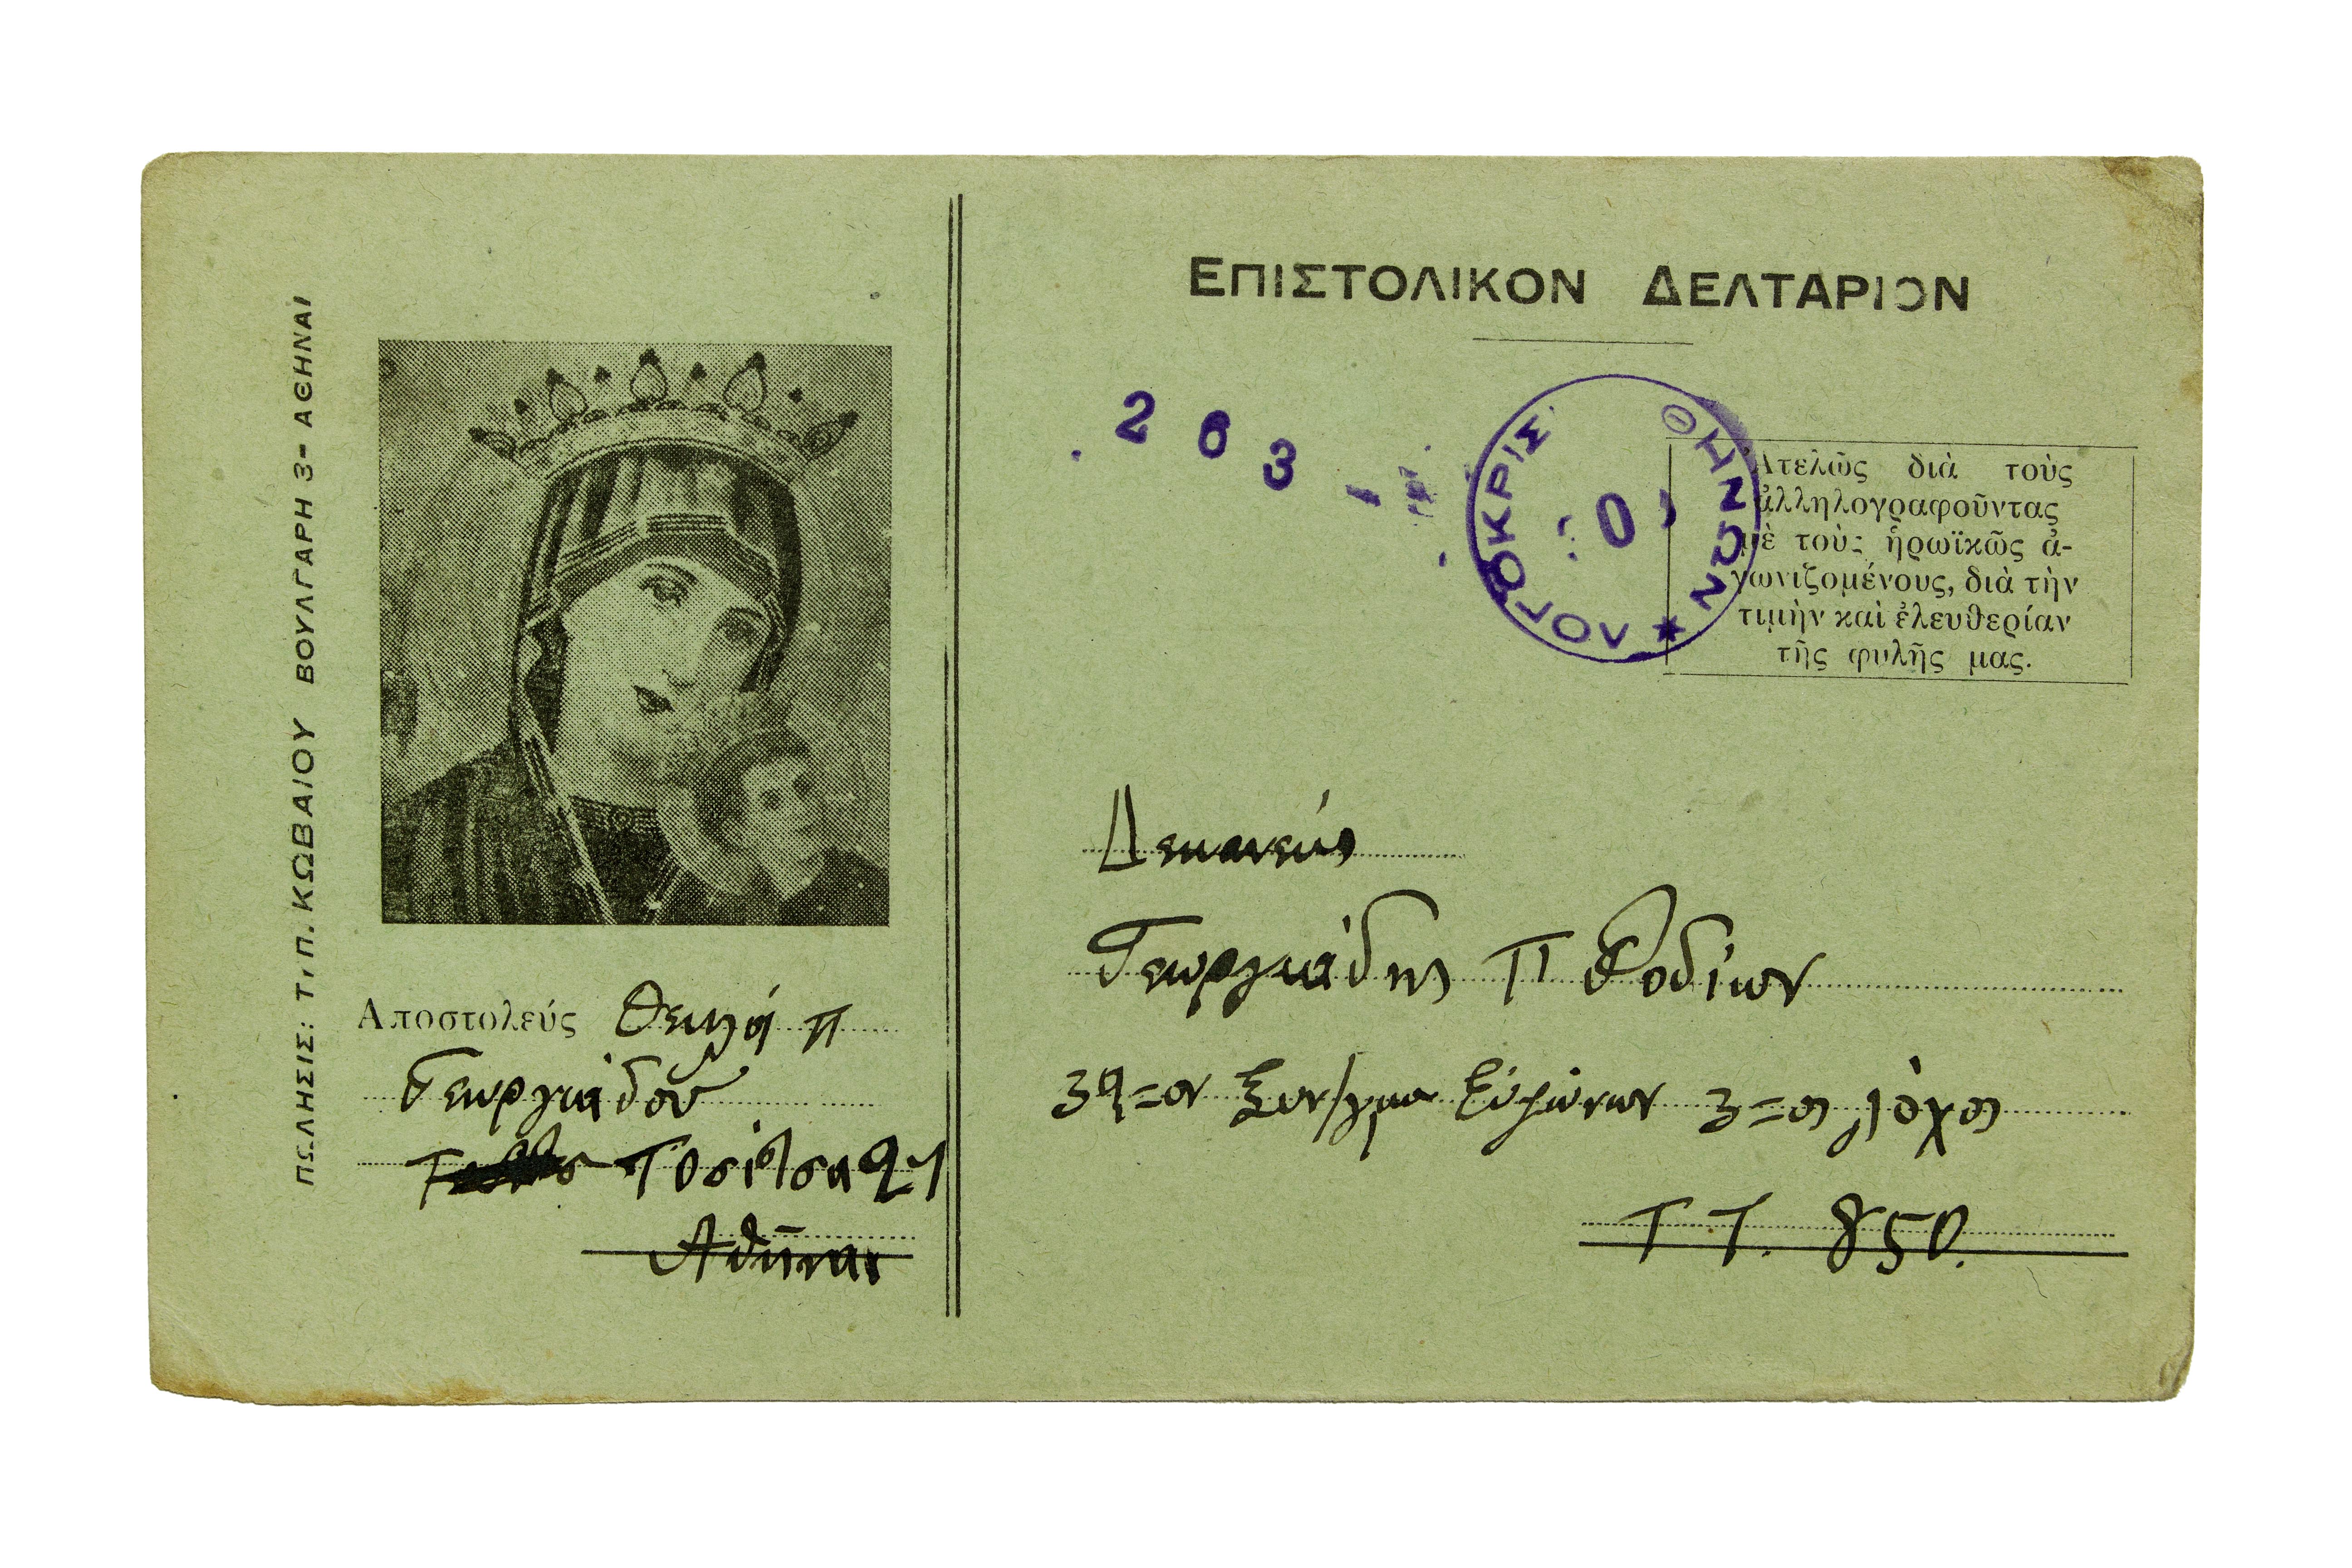 ΠΩΛΗΣΙΣ: Τ,Π. ΚΩΒΑΙΟΥ ΒΟΥΛΓΑΡΗ 3- ΑΘΗΝΑΙ
Αποστολεύς Θεκλά Π
Γεωργιάδου
Τοσίτσα 21
Αθήναι
ΕΠΙΣΤΟΛΙΚΟΝ ΔΕΛΤΑΡΙΟΝ
263
ΛΟΓΟΚΡΙΣ ΘΗΝΩΝ
Ἀτελῶς διὰ τοὺς
ἀλληλογραφοῦντας
μὲ τοὺς ἡρωϊκῶς ἀ-
γωνιζομένους, διὰ τὴν
τιμὴν καὶ ἐλευθερίαν
τῆς φυλῆς μας.
Δεκανεύς
Γεωργιάδης Π Ροδίων
39=ον Συν/γμα Ευζώνων 3=ος λόχος
Τ.Τ. 850.